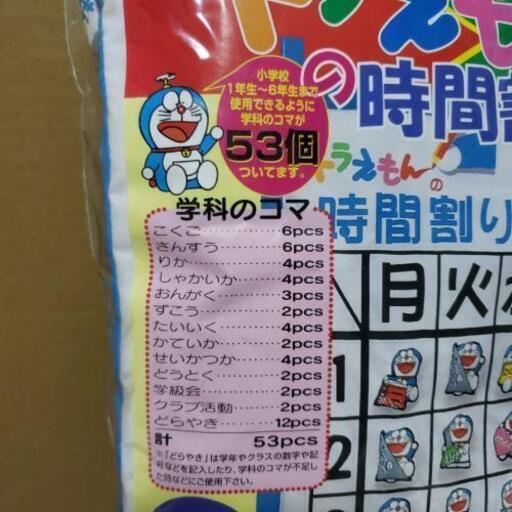 ドラえもん
の時間割
小学校
1年生〜6年生まで
使用できるように
学科のコマが
53個
ついてます。
ドラえもんの
時間割り
学科のコマ
こくご……………6pcs
さんすう…………6pcs
りか………………4pcs
しゃかいか………4pcs
おんがく…………3pcs
ずこう……………2pcs
たいいく…………4pcs
かていか…………2pcs
せいかつか………4pcs
どうとく…………2pcs
学級会……………2pcs
クラブ活動………2pcs
どらやき…………12pcs
計 53pcs
※「どらやき」は学年やクラスの数字や記
号などを記入したり、学科のコマが不足し
た時などにご使用下さい。
月 火
1
2